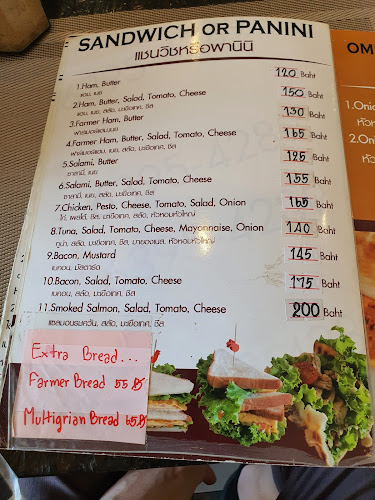 SANDWICH OR PANINI
แซนวิชหรือพานินิ
1.Ham, Butter 120 Baht
แฮม, เนย
2.Ham, Butter, Salad, Tomato, Cheese 150 Baht
แฮม, เนย, สลัด, มะเขือเทศ, ชีส
3.Farmer Ham, Butter 130 Baht
ฟาร์มเมอร์แฮมเนย
4.Farmer Ham, Butter, Salad, Tomato, Cheese 165 Baht
ฟาร์มเมอร์แฮม, เนย, สลัด, มะเขือเทศ, ชีส
5.Salami, Butter 125 Baht
ซาลามี่, เนย
6.Salami, Butter, Salad, Tomato, Cheese 155 Baht
ซาลามี่, เนย, สลัด, มะเขือเทศ, ชีส
7.Chicken, Pesto, Cheese, Tomato, Salad, Onion 165 Baht
ไก่, เพสโต้, ชีส, มะเขือเทศ, สลัด, หัวหอมหัวใหญ่
8.Tuna, Salad, Tomato, Cheese, Mayonnaise, Onion 140 Baht
ทูน่า, สลัด, มะเขือเทศ, ชีส, มายองเนส, หัวหอมหัวใหญ่
9.Bacon, Mustard 145 Baht
เบคอน, มัสตาร์ด
10.Bacon, Salad, Tomato, Cheese 175 Baht
เบคอน, สลัด, มะเขือเทศ, ชีส
11.Smoked Salmon, Salad, Tomato, Cheese 200 Baht
แซลมอนรมควัน, สลัด, มะเขือเทศ, ชีส
Extra Bread...
Farmer Bread 55 ฿
Multigrian Bread 65 ฿
OM
1.Onio
หัวห
2.Onio
หัวให